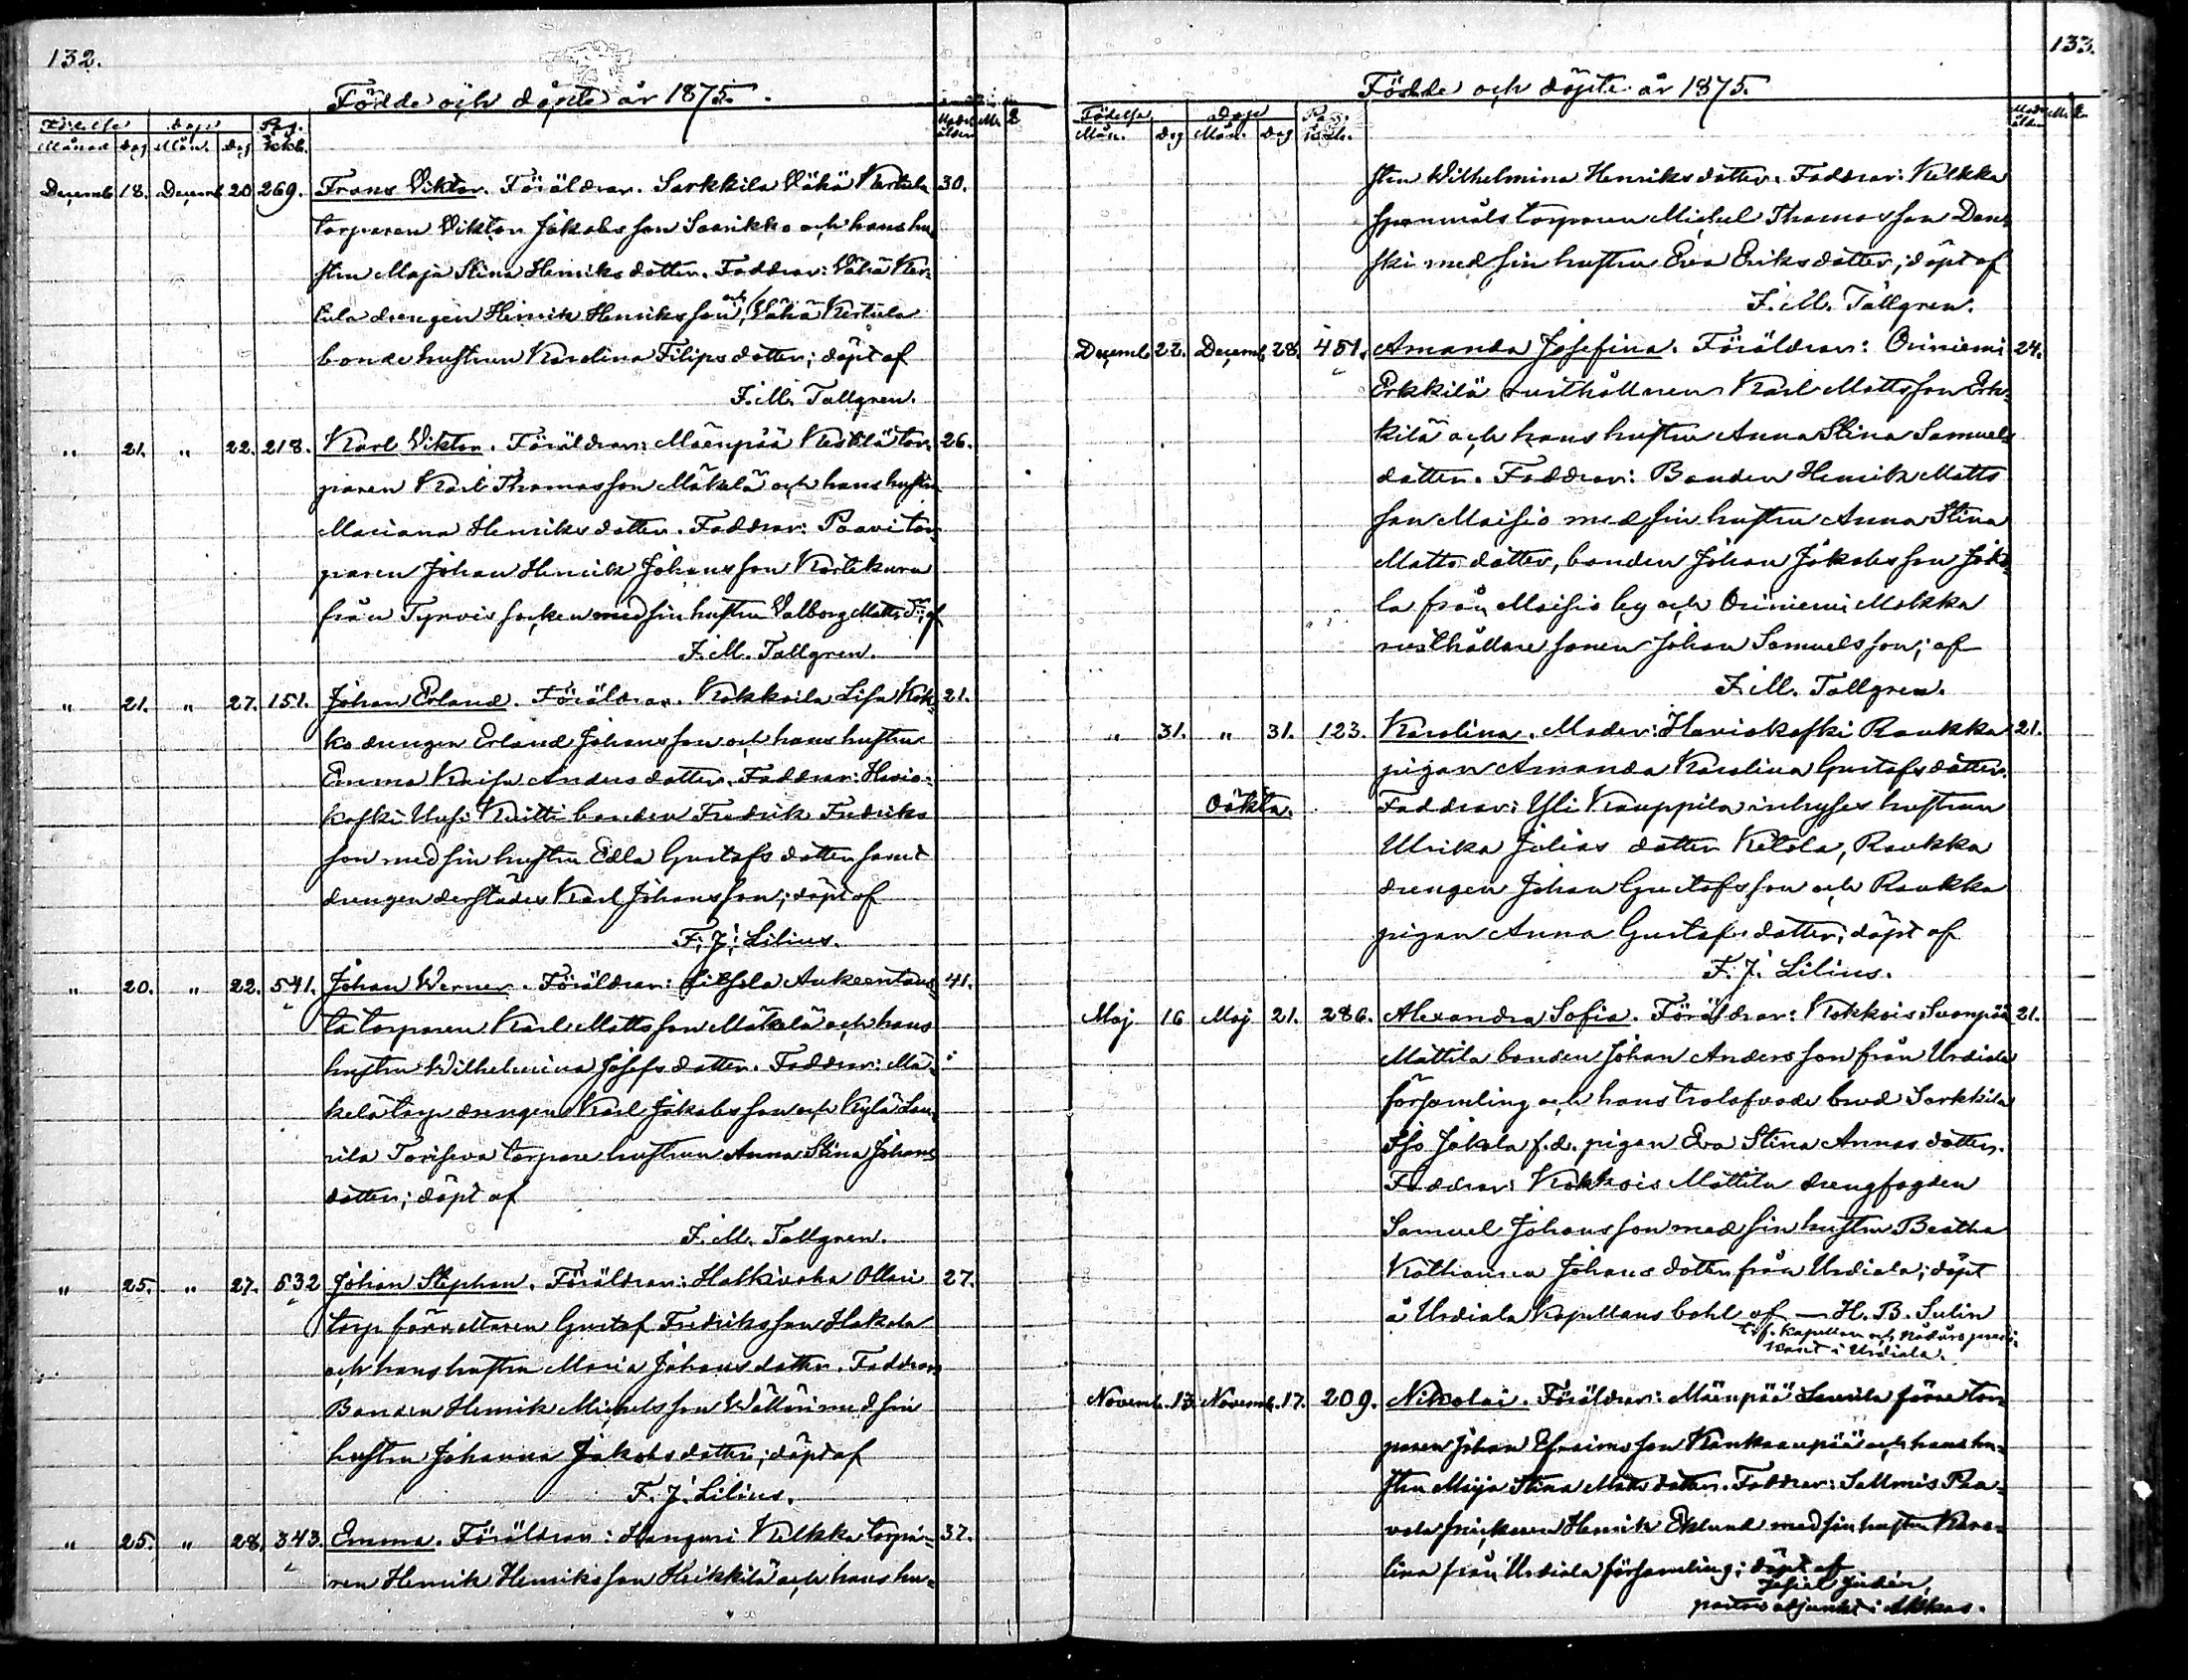 132.
Födde och döpte år 1875.
Födelse Döpe Pag.
Månad dag Mån. dag kkb.
Moders ålder M. Q
Decemb. 18. Decemb. 20 269. Frans Viktor. Föräldrar. Sarkkila Vähä Kertula 30.
torparen Viktor Jakobsson Saarikko och hans hu-
stru Maja Stina Henriksdotter. Faddrar: Vähä Ker-
tula drengen Henrik Henriksson och Vähä Kertula
bonde hustrun Karolina Filipsdotter; döpt af
F. M. Tallgren.
" 21. " 22. 218. Karl Viktor. Föräldrar: Mäenpää Keskilä tor- 26.
paren Karl Thomasson Mäkelä och hans hustru
Mariana Henriksdotter. Faddrar: Paavi tor-
paren Johan Henrik Johansson
från Tyrvis socken med sin hustru Valborg Matts dr; af
F. M. Tallgren.
" 21. " 27. 151. Johan Erland. Föräldrar. Kokkoila Lisa Kok- 21.
ko drengen Erland Johansson och hans hustru
Emma Kaisa Andersdotter. Faddrar: Havio-
koski Uusi Knitti bonden Fredrik Fredriks
son med sin hustru Edla Gustafsdotter samt
drengen derstädes Karl Johansson; döpt af
F. J. Lilius.
" 20. " 22. 541. Johan Werner. Föräldrar: Aukeentaus- 41.
ta torparen Karl Mattsson Mäkelä och hans
hustru Wilhelmina Josefsdotter. Faddrar: Mä-
kelä torp drengen Karl Jakobsson och Kylä Lau-
rila torpare hustrun Anna Stina Johans
dotter; döpt af
F. M. Tallgren.
" 25. " 27. 532 Johan Stephan. Föräldrar: Halkivaha Ollari 27.
torp förvaltaren Gustaf Fredriksson Hakala
och hans hustru Maria Johansdotter. Faddrar
Bonden Henrik Michelsson Wälläri med sin
hustru Johanna Jakobsdotter; döpt af
F. J. Lilius.
" 25. " 28. 343. Emma. Föräldrar: Hanguri Kelkka torpa- 37.
ren Henrik Henriksson Heikkilä och hans hu-
133.
Födde och döpte år 1875.
Födelse Döpe Pag.
Mån. dag Mån. dag kkb.
Moders ålder M. Q.
stru Wilhelmina Henriksdotter. Faddrar: Kelkka
spanmåls torparen Michel Thomasson Dan-
ski med sin hustru Eva Eriksdotter; döpt af
F. M. Tallgren.
Decemb. 22. Decemb. 28. 451. Amanda Josefina. Föräldrar: Oriniemi 24.
Erkkilä rusthållaren Karl Mattsson Erk-
kilä och hans hustru Anna Stina Samuels
dotter. Faddrar: Bonden Henrik Matts
son Maisio med sin hustru Anna Stina
Mattsdotter, bonden Johan Jakobsson Joko-
la från Maisio by och Oriniemi Mokka
rusthållare sonen Johan Samuelsson; af
F. M. Tallgren.
" 31. " 31. 123. Karolina. Moder: Haviokoski Raukka 21.
pigan Amanda Karolina Gustafsdotter.
Oäkta. Faddrar: Yli Kauppila inhyses hustrun
Ulrika Julias dotter Ketola, Raukka
drengen Johan Gustafsson och Raukka
pigan Anna Gustafsdotter; döpt af
F. J. Lilius.
Maj 16 Maj 21. 286. Alexandra Sofia. Föräldrar: Kokkois Suonpää 21.
Mattila bonden Johan Andersson från Urdiala
församling och hans trolofvade brud Sarkkila
Iso Jokela f.d. pigan Eva Stina Annasdotter.
Faddrar: Kokkois Mattila drengfogden
Samuel Johansson med sin hustru Beatha
Katharina Johansdotter från Urdiala; döpt
å Urdiala Kapellans bohl af — H. B. Sulin
t. f. kapellan och nådårs predi-
kant i Urdiala.
Novemb. 13. Novemb. 17. 209. Nikolai. Föräldrar: Mäenpää Laurila förre tor-
paren Johan Efraimsson Kankaanpää och hans hu-
stru Maja Stina Mattsdotter. Faddrar: Sallmis Paa-
vola snickaren Henrik Eklund med sin hustru Karo-
lina från Urdiala församling; döpt af
Josef Judén,
pastors adjunkt i Akkas.